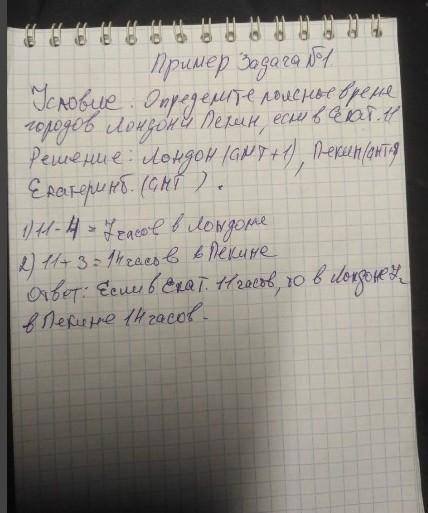 Пример Задача №1
Условие. Определите поясные время
городов Лондон и Пекин, если в Екат. 11
Решение: Лондон (GMT+1), Пекин (GMT+8)
Екатеринб. (GMT ).
1) 11-4=7 часов в Лондоне
2) 11+3=14 часов в Пекине
Ответ: Если в Екат. 11 часов, то в Лондоне 7ч.
в Пекине 14 часов.